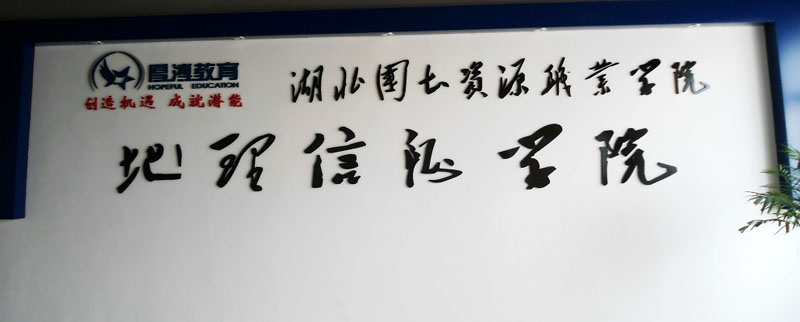 厚溥教育
HOPEFUL EDUCATION
创造机遇 成就潜能
湖北國土資源職業学院
地理信息学院